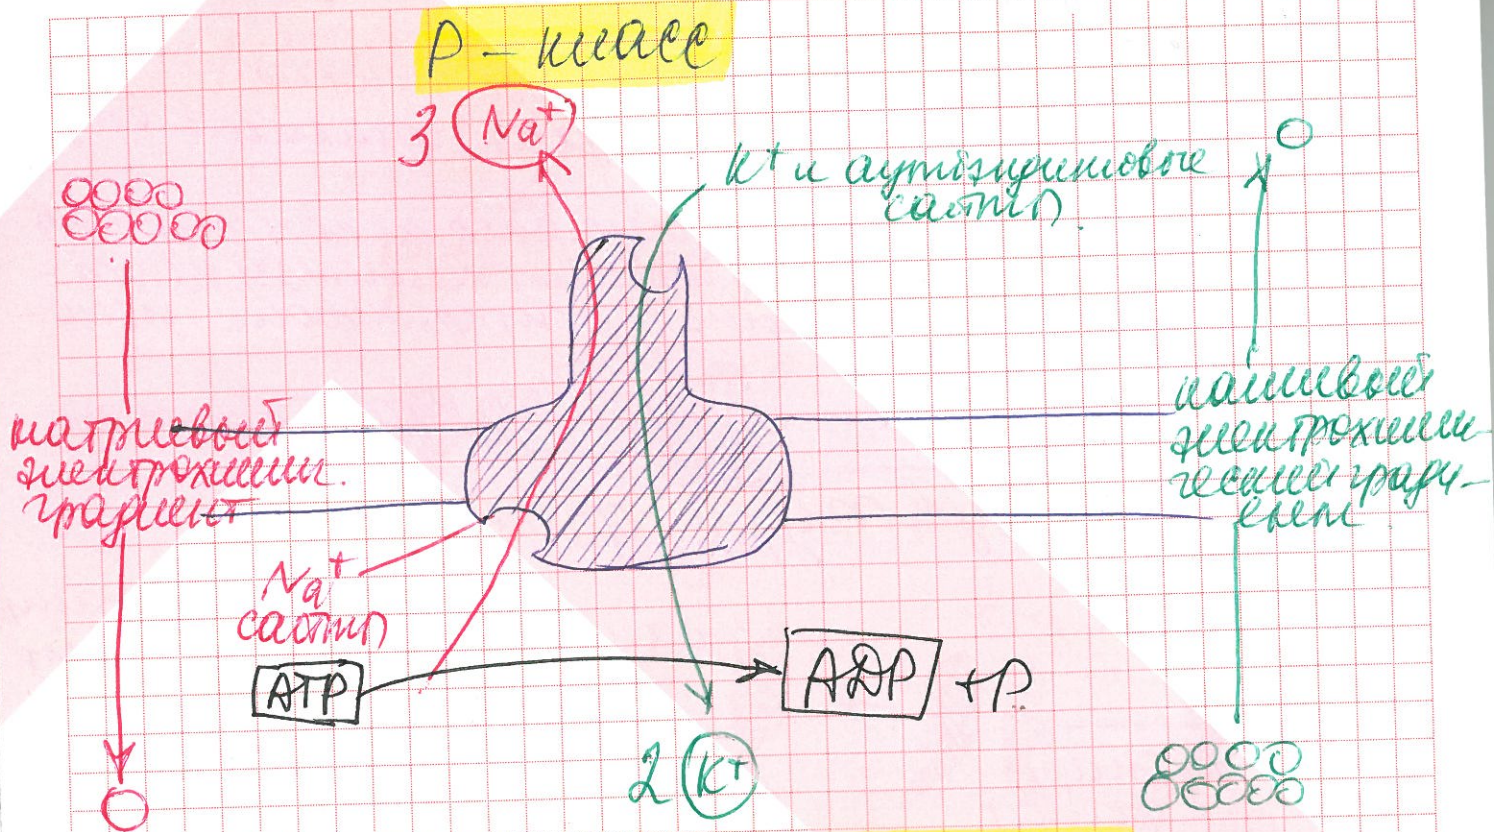 P - класс
3 Na⁺
K⁺ и
сайты
натриевый
электрохимич.
градиент
калиевый
электрохими-
ческий гради-
ент
Na⁺
сайты
ATP
ADP + P
2 K⁺